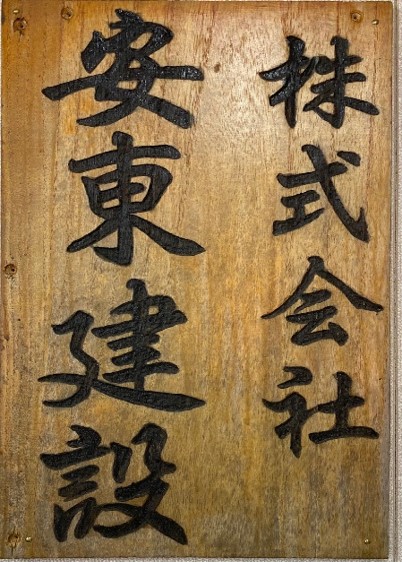 株式会社
安東建設